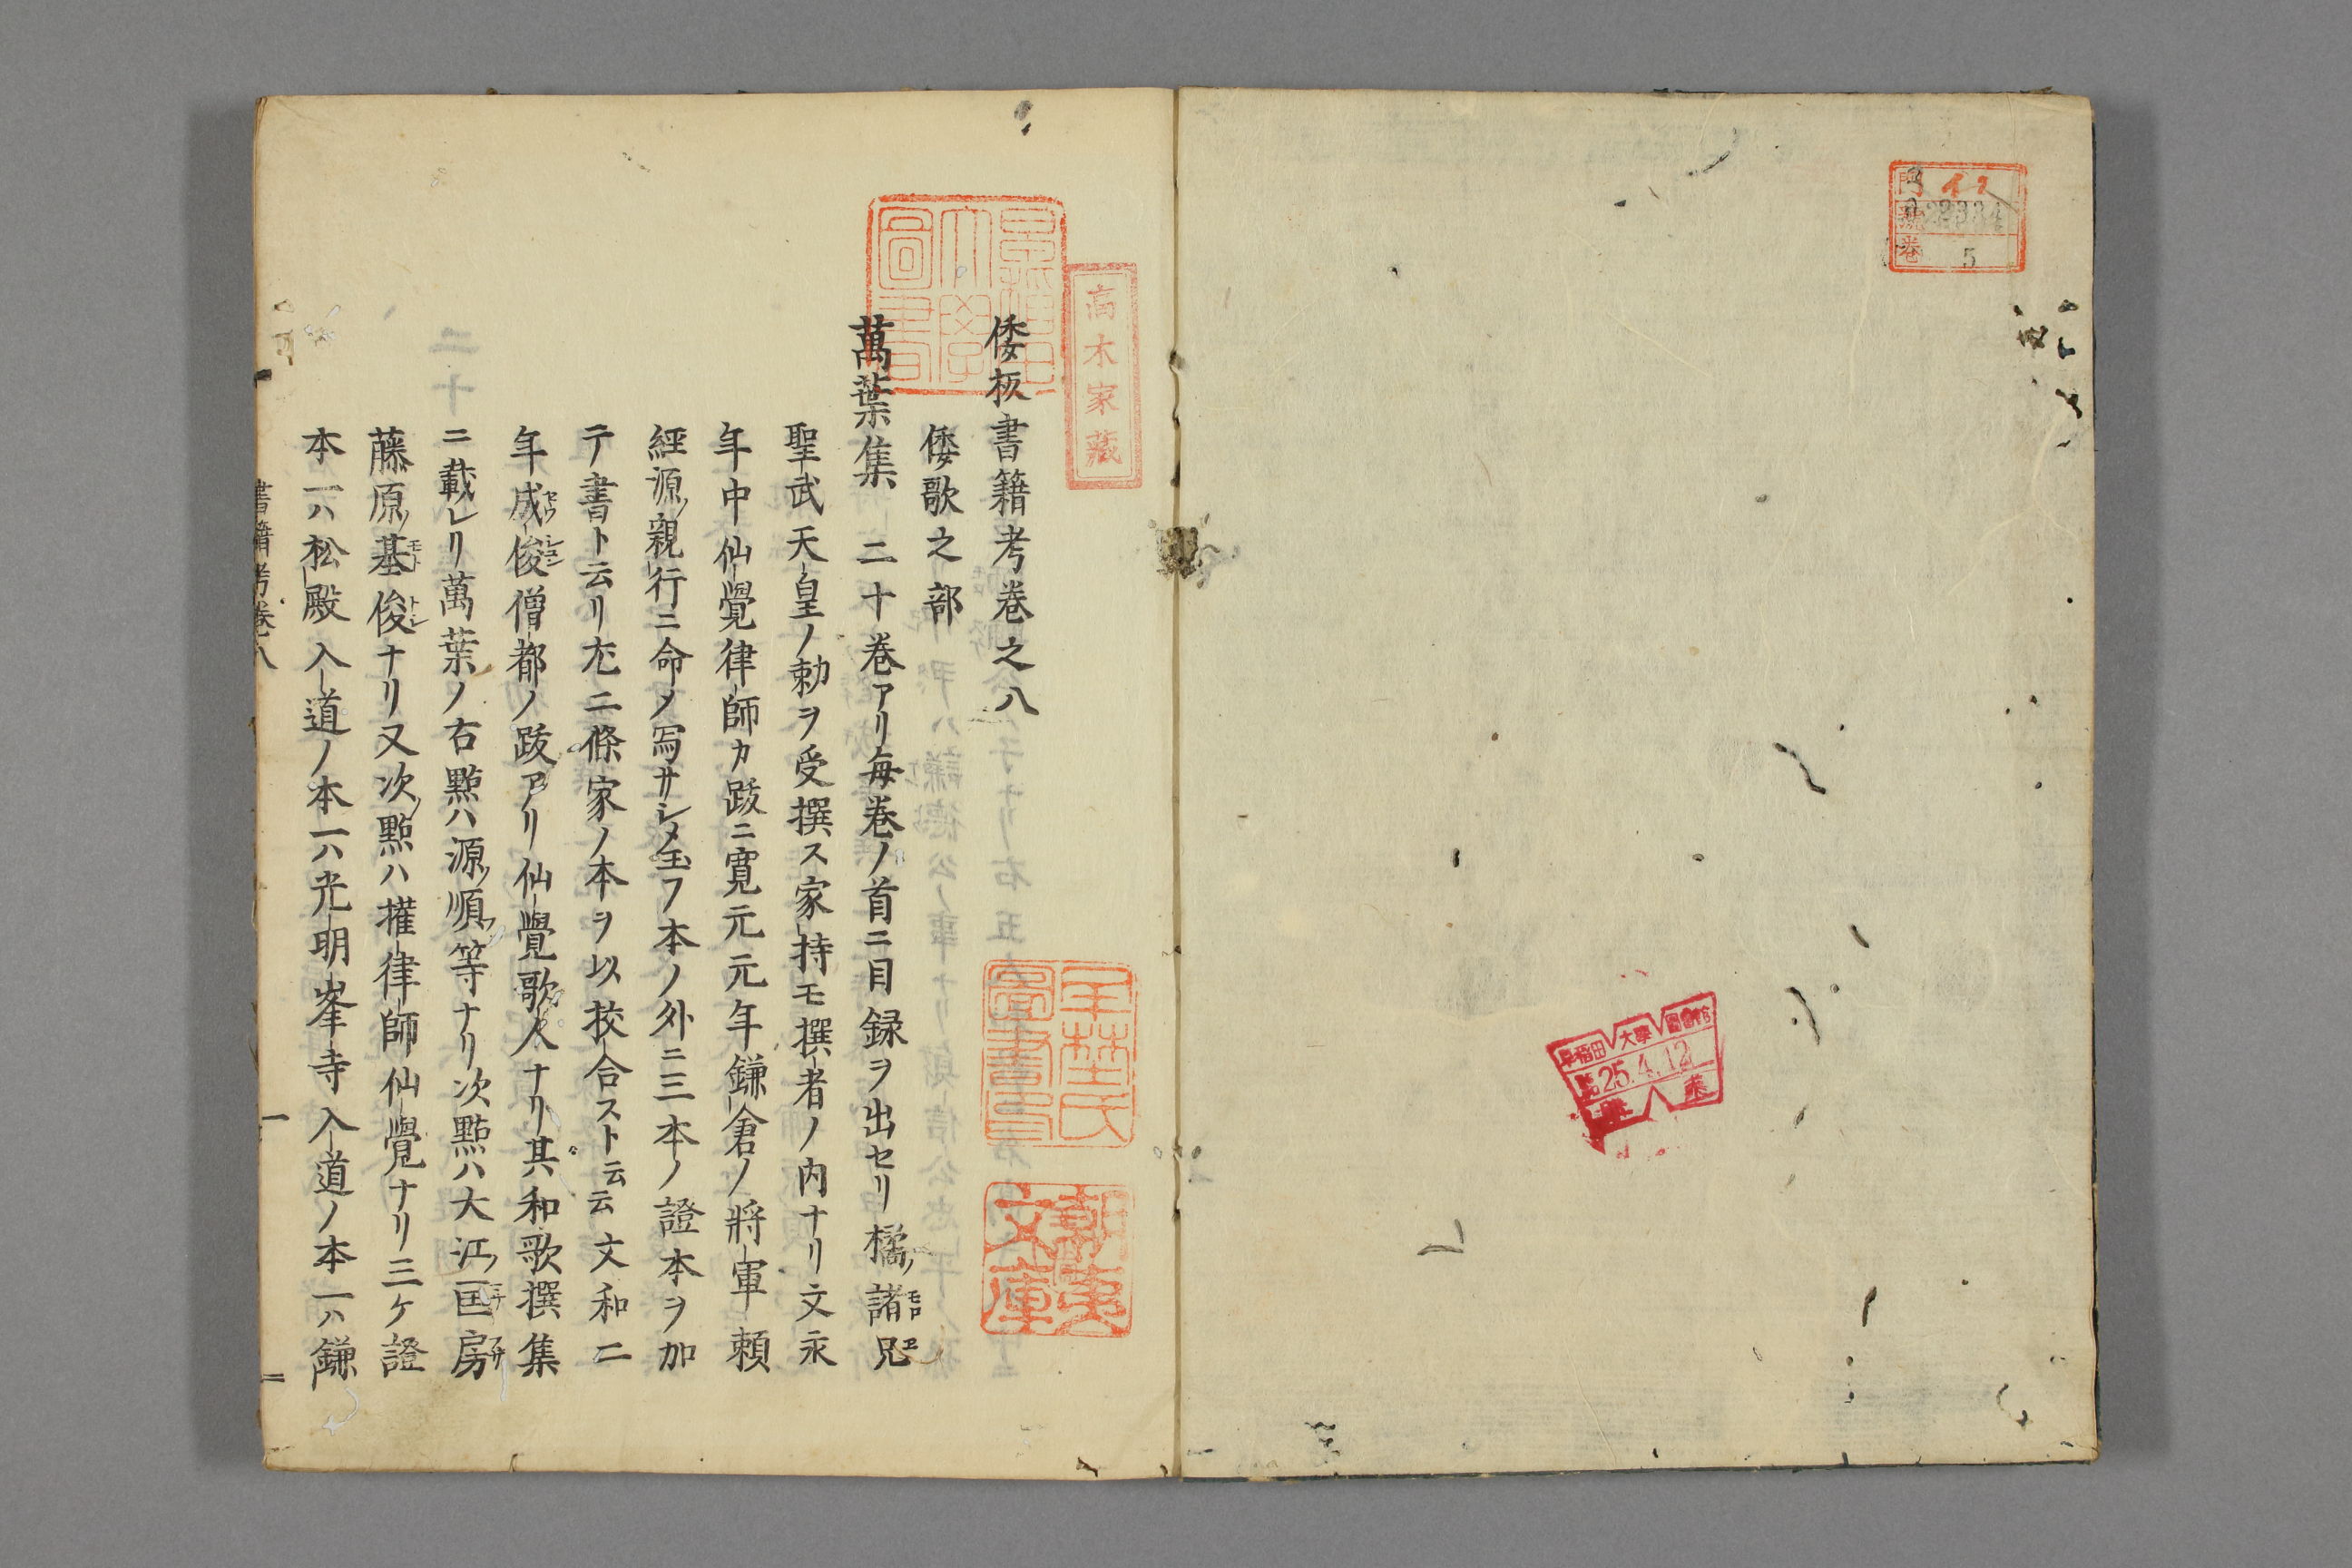 門 イ2
號 28384
巻 5
早稲田大學圖書館
25.4.12
高木家藏
早稲田大學圖書
圖書
文庫
倭板書籍考卷之八
倭歌之部
萬葉集 二十卷アリ毎卷ノ首ニ目録ヲ出セリ橘ノ諸兄
聖武天皇ノ勅ヲ受撰ス家持モ撰者ノ内ナリ文永
年中仙覺律師カ跋ニ寛元元年鎌倉ノ將軍頼
經源ノ親行ニ命メ写サシメ玉フ本ノ外ニ三本ノ證本ヲ加
テ書ト云リ尤二條家ノ本ヲ以挍合スト云云文和二
年成俊僧都ノ跋アリ仙覺歌人ナリ其和歌撰集
ニ載レリ萬葉ノ右點ハ源ノ順等ナリ次點ハ大江ノ匡房
藤原ノ基俊ナリ又次ノ點ハ權律師仙覺ナリ三ケ證
本一ハ松殿入道ノ本一ハ光明峯寺入道ノ本一ハ鎌
書籍考卷八
一